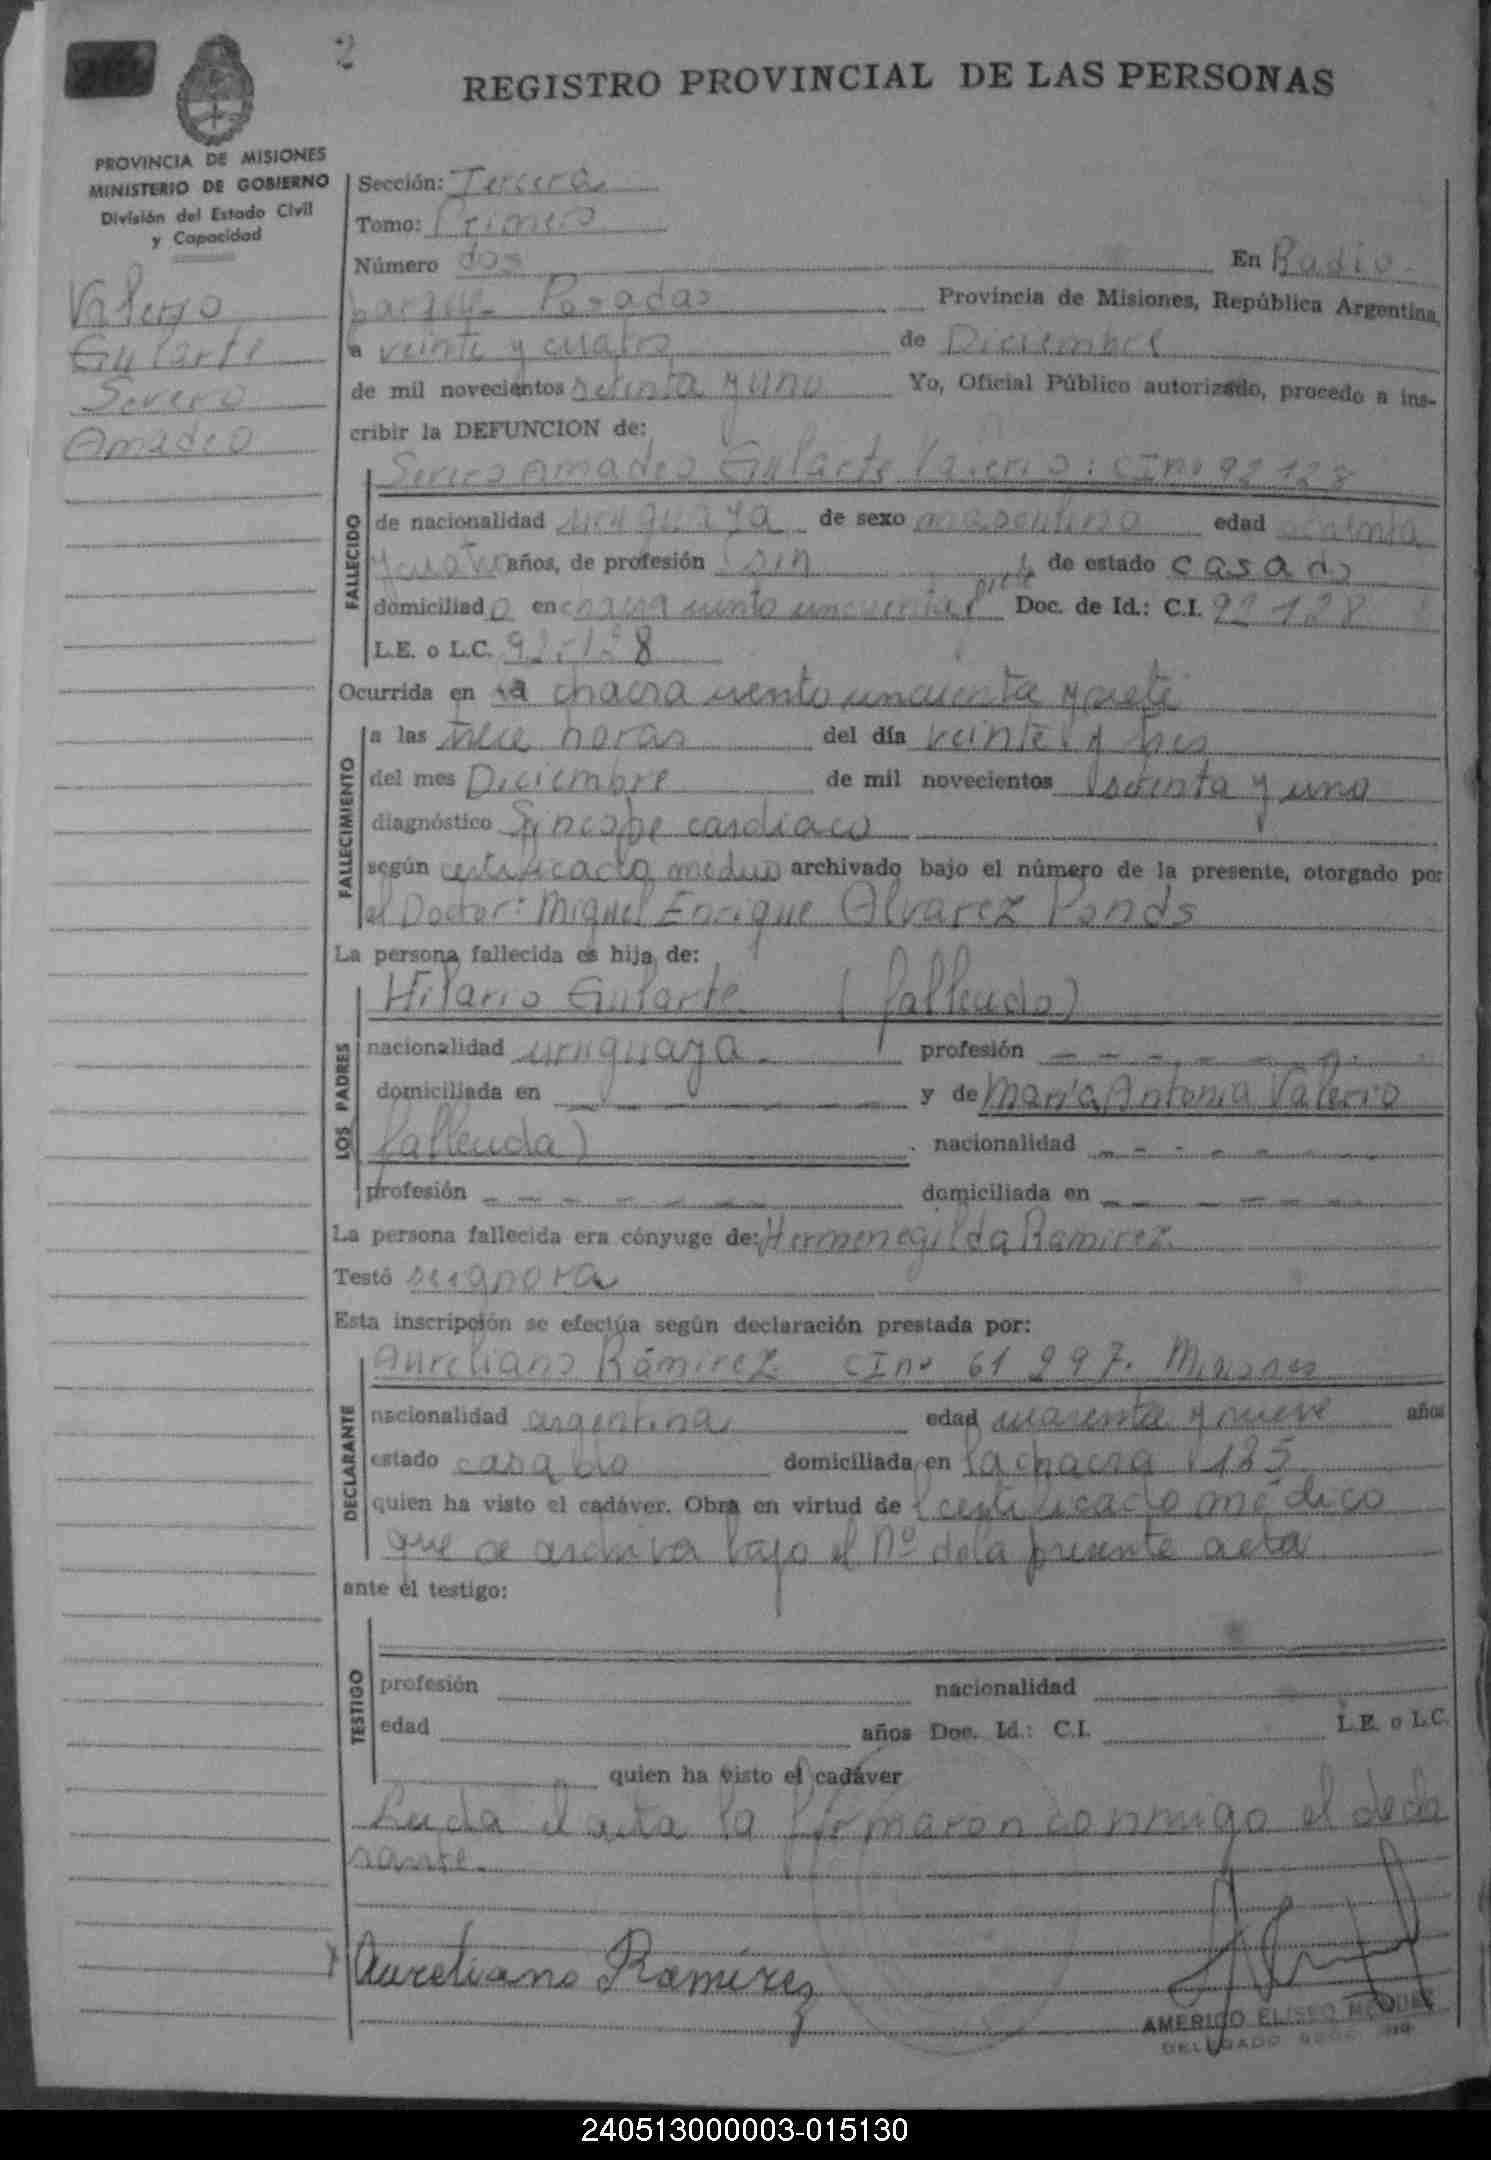 2
REGISTRO PROVINCIAL DE LAS PERSONAS
PROVINCIA DE MISIONES
MINISTERIO DE GOBIERNO
División del Estado Civil
y Capacidad
Valerio
Gularte
Severo
Amadeo
Sección: Tercera
Tomo: Primero
Número dos En Radio
parque Posadas Provincia de Misiones, República Argentina,
a veinte y cuatro de Diciembre
de mil novecientos setenta y uno Yo, Oficial Público autorizado, procedo a ins-
cribir la DEFUNCION de:
FALLECIDO
Severo Amadeo Gularte Valerio: CI no 92128
de nacionalidad uruguaya de sexo masculino edad
y cuatro años, de profesión sin de estado casado
domiciliado en chacra ciento cincuenta y siete Doc. de Id.: C.I. 92128
L.E. o L.C. 92.128
Ocurrida en la chacra ciento cincuenta y siete
FALLECIMIENTO
a las trece horas del día veinte y tres
del mes Diciembre de mil novecientos setenta y uno
diagnóstico Síncope cardíaco
según certificado médico archivado bajo el número de la presente, otorgado por
el Doctor: Miguel Enrique Alvarez Ponds
La persona fallecida es hija de:
LOS PADRES
Hilario Gularte (fallecido)
nacionalidad uruguaya. profesión - - - - - -
domiciliada en - - - - - - y de María Antonia Valerio
fallecida) . nacionalidad - - - - - - -
profesión - - - - - - domiciliada en - - - - - -
La persona fallecida era cónyuge de: Hermenegilda Ramirez
Testó se ignora
Esta inscripción se efectúa según declaración prestada por:
DECLARANTE
Aureliano Rámirez CI no 61 297. Misiones
nacionalidad argentina edad cuarenta y nueve años
estado casado domiciliada en la chacra 185
quien ha visto el cadáver. Obra en virtud de certificado médico
que se archiva bajo el Nº de la presente acta
ante el testigo:
TESTIGO
profesión nacionalidad
edad años Doc. Id.: C.I. L.E. o L.C.
quien ha visto el cadáver
Leida el acta la firmaron conmigo el decla
rante.
Aureliano Ramírez
AMERICO ELISEO
DELEGADO
240513000003-015130